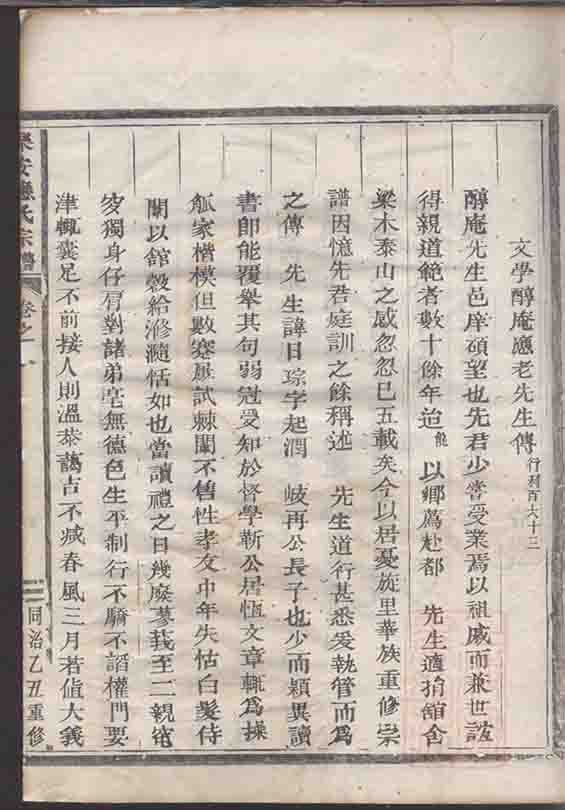 文學醇庵應老先生傳行列百六十三
醇庵先生邑庠碩望也先君少嘗受業焉以祖戚而兼世誼
得親道範者數十餘年迨能以鄉薦赴都　先生適捐館舍
梁木泰山之感忽忽已五載矣今以居憂旋里華族重修崇
譜因憶先君庭訓之餘稱述　先生道行甚悉爰執管而為
之傳　先生諱日琮字起潤　岐再公長子也少而穎異讀
書即能覆舉其句弱冠受知於督學靳公居恆文章輒為操
觚家楷模但數蹇屢試棘闈不售性孝友中年失怙白髮侍
闈以館穀給滫瀡恬如也當讀禮之日幾廢蓼莪至二親窀
穸獨身仔肩對諸弟毫無德色生平制行不驕不謟權門要
津輒裹足不前接人則溫恭藹吉不减春風三月若値大義
樂安應氏宗譜　卷之一　同治乙丑重修